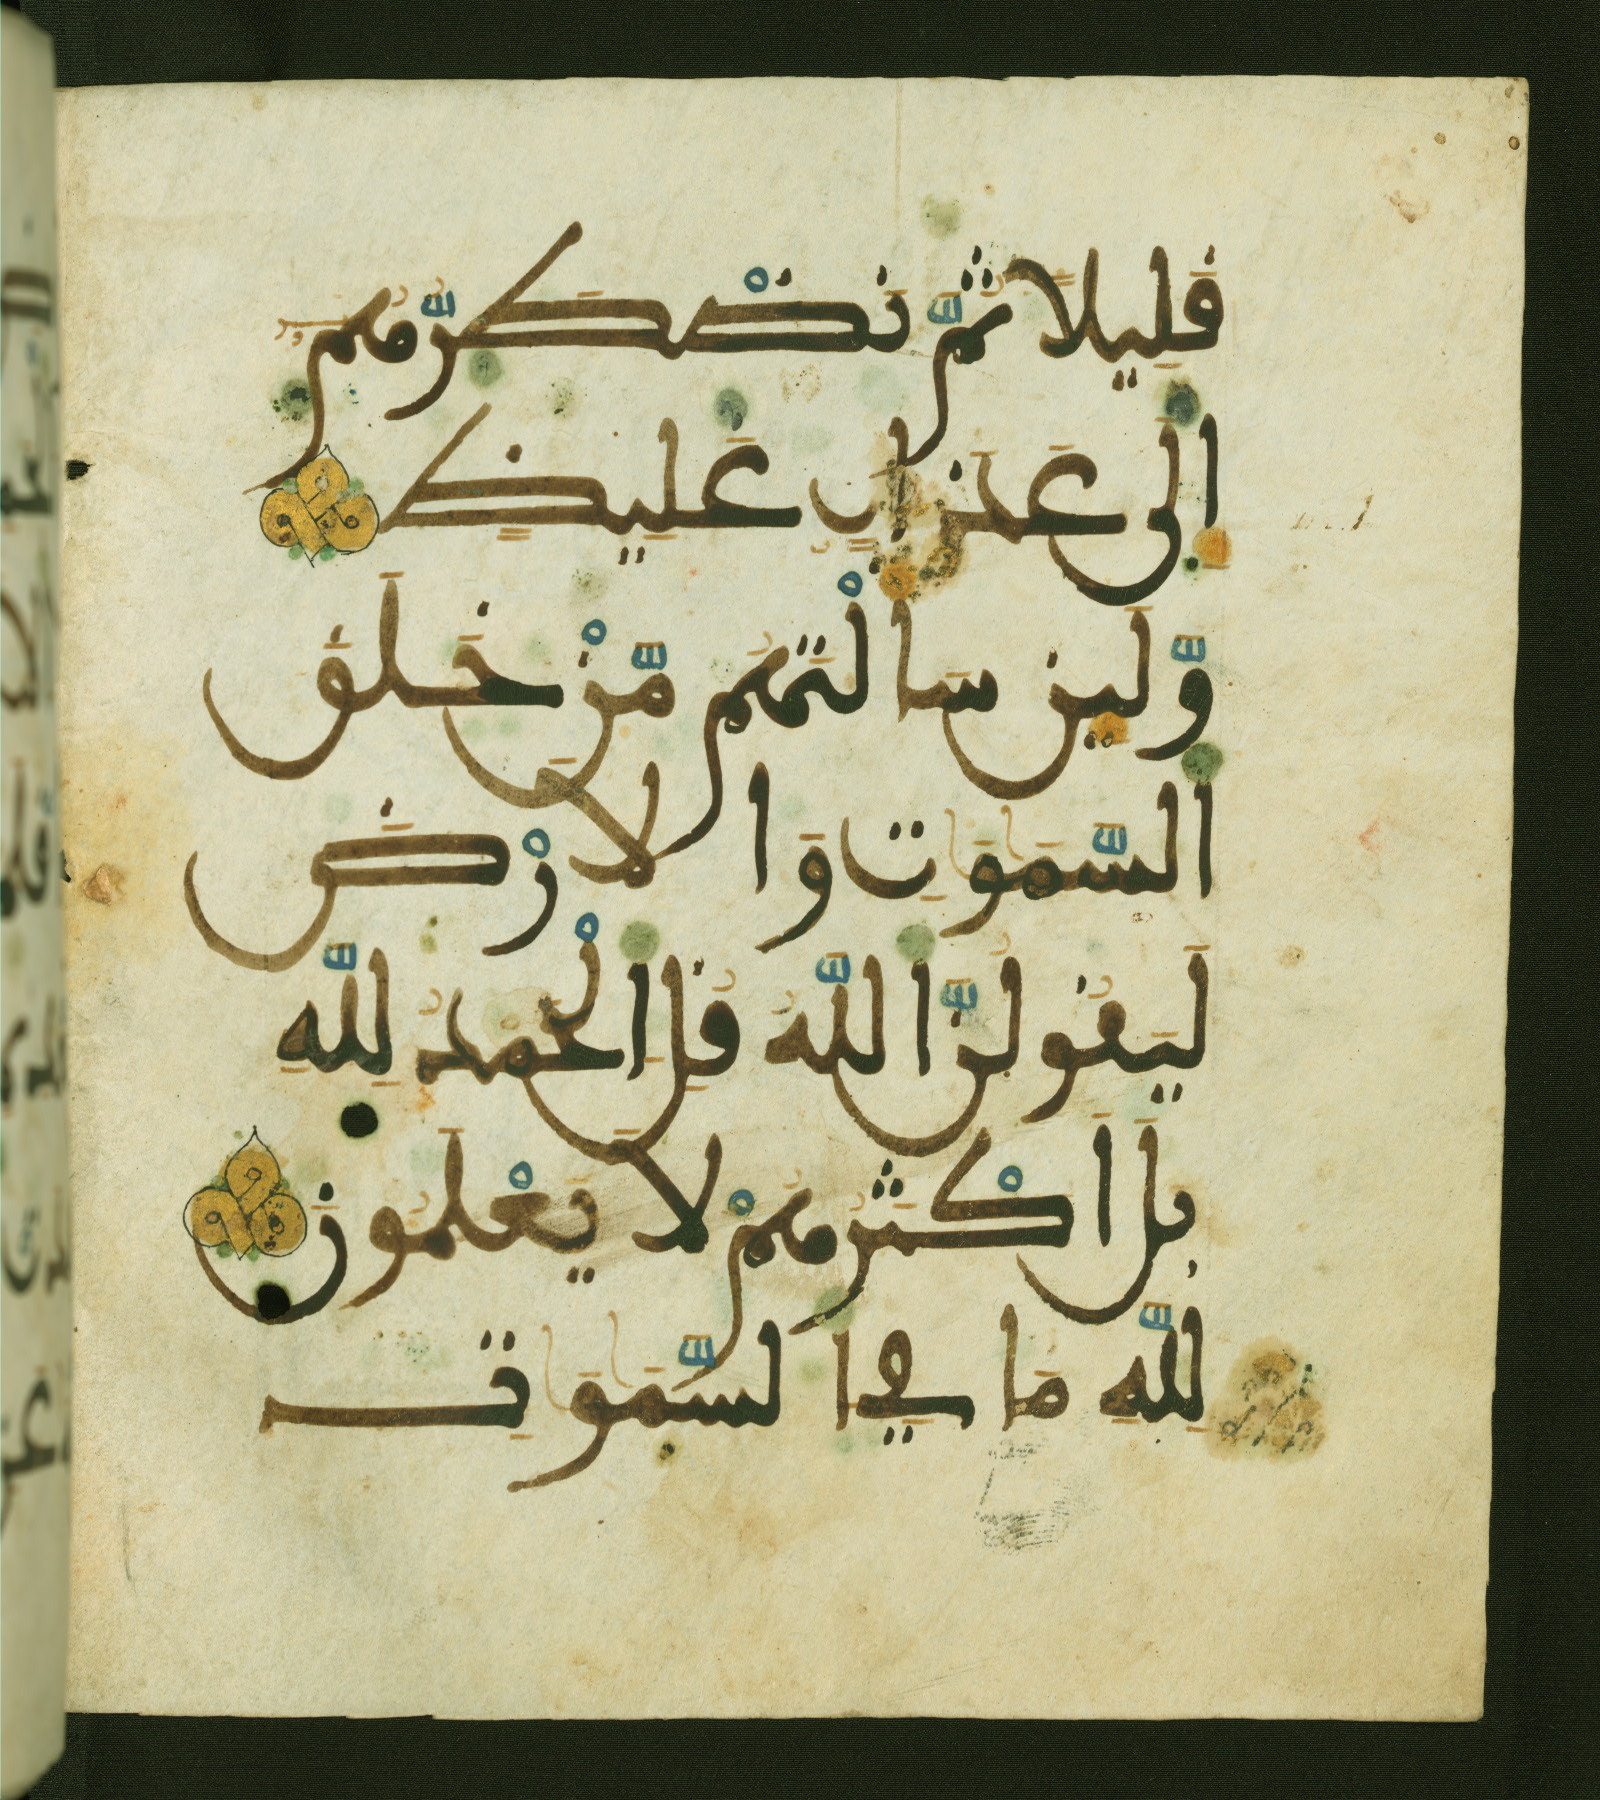 قَلِيلاً ثُمَّ نَضْطَرُّهُمُۥ
إِلَىٰ عَذَابٍ غَلِيظٍ
وَّلَئِن سَأَلْتَهُم مَّنْ خَلَقَ
ٱلسَّمَٰوَٰتِ وَالَارْضَ
لَيَقُولُنَّ ٱللَّهُ قُلِ ٱلْحَمْدُ لِلَّهِ
بَلَ اَكْثَرُهُمْ لَا يَعْلَمُونَ
لِلَّهِ مَا فِي ٱلسَّمَٰوَٰتِ